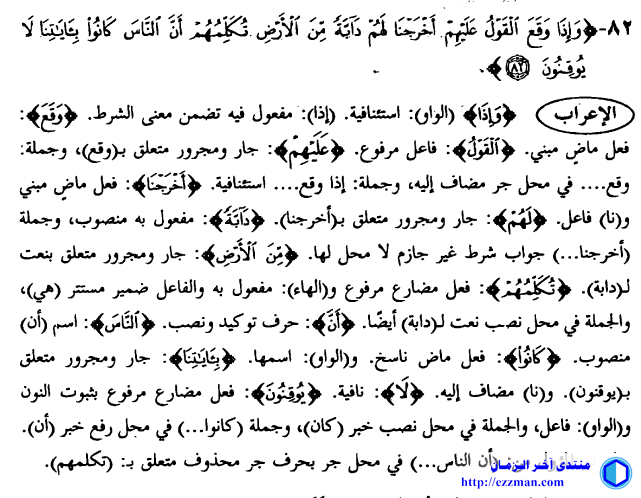 ٨٢-﴿وَإِذَا وَقَعَ ٱلْقَوْلُ عَلَيْهِمْ أَخْرَجْنَا لَهُمْ دَآبَّةً مِّنَ ٱلْأَرْضِ تُكَلِّمُهُمْ أَنَّ ٱلنَّاسَ كَانُوا۟ بِـَٔايَـٰتِنَا لَا
يُوقِنُونَ ۝٨٢﴾.
الإعراب ﴿وَإِذَا﴾ (الواو): استئنافية. (إذا): مفعول فيه تضمن معنى الشرط. ﴿وَقَعَ﴾:
فعل ماضٍ مبني. ﴿ٱلْقَوْلُ﴾: فاعل مرفوع. ﴿عَلَيْهِمْ﴾: جار ومجرور متعلق بـ(وقع)، وجملة:
وقع.... في محل جر مضاف إليه، وجملة: إذا وقع.... استئنافية. ﴿أَخْرَجْنَا﴾: فعل ماضٍ مبني
و(نا) فاعل. ﴿لَهُمْ﴾: جار ومجرور متعلق بـ(أخرجنا). ﴿دَآبَّةً﴾: مفعول به منصوب، وجملة
(أخرجنا...) جواب شرط غير جازم لا محل لها. ﴿مِّنَ ٱلْأَرْضِ﴾: جار ومجرور متعلق بنعت
لـ(دابة). ﴿تُكَلِّمُهُمْ﴾: فعل مضارع مرفوع و(الهاء): مفعول به والفاعل ضمير مستتر (هي)،
والجملة في محل نصب نعت لـ(دابة) أيضًا. ﴿أَنَّ﴾: حرف توكيد ونصب. ﴿ٱلنَّاسَ﴾: اسم (أن)
منصوب. ﴿كَانُوا۟﴾: فعل ماض ناسخ. و(الواو): اسمها. ﴿بِـَٔايَـٰتِنَا﴾: جار ومجرور متعلق
بـ(يوقنون). و(نا) مضاف إليه. ﴿لَا﴾: نافية. ﴿يُوقِنُونَ﴾: فعل مضارع مرفوع بثبوت النون
و(الواو): فاعل، والجملة في محل نصب خبر (كان)، وجملة (كانوا...) في محل رفع خبر (أن).
(أن الناس...) في محل جر بحرف جر محذوف متعلق بـ: (تكلمهم).
منتدى آخر الزمان
www.ezzman.com